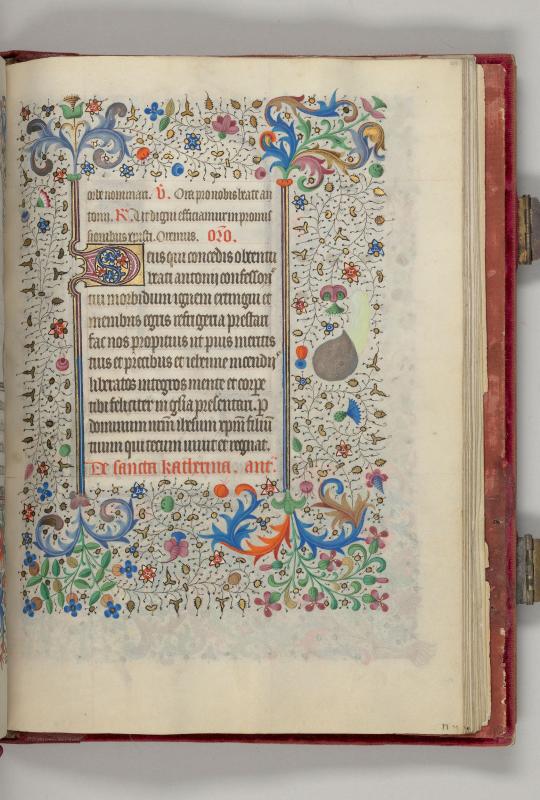 orde nominari. V̉. Ora pro nobis beate an
toni. R̉. Ut digni efficiamur in promis
sionibus xpisti. Oremus. Oro.
Deus qui concedis obtentu
beati antonij confessoris
tui morbidum ignem extingui et
membris egris refrigeria prestari
fac nos propitius ut piius meritis
ipsius et precibus et gehenne incendiis
liberatos integros mente et corpe
tibi feliciter in gl̄ia presentari. P
dominum nrm ihesum xpm filiū
tuum qui tecum uiuit et regnat.
De sancta katherina. ant'.